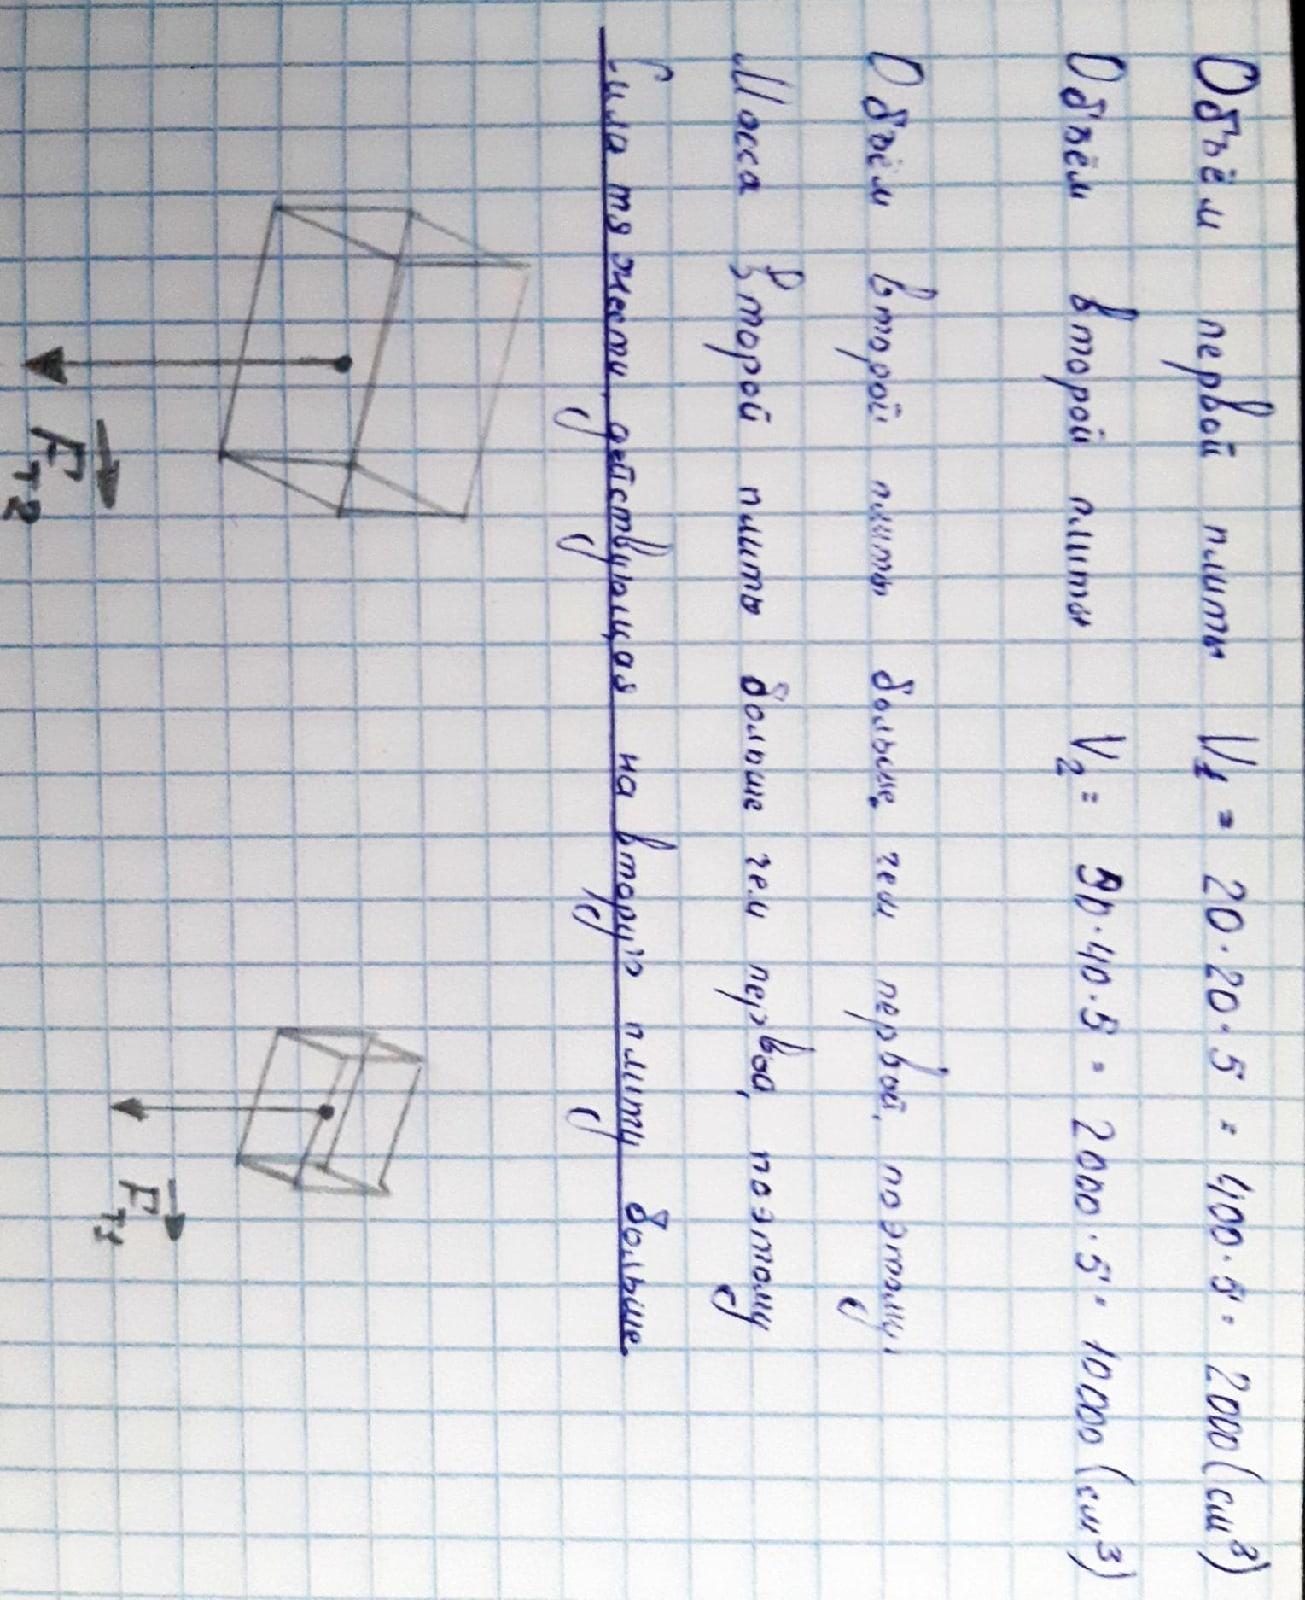 Объём первой плиты V₁ = 20·20·5 = 400·5 = 2000 (см³)
Объём второй плиты V₂ = 50·40·5 = 2000·5 = 10000 (см³)
Объём второй плиты больше, чем первой, поэтому,
Масса второй плиты больше чем первой, поэтому
Сила тяжести, действующая на вторую плиту больше.
F⃗т2
F⃗т1